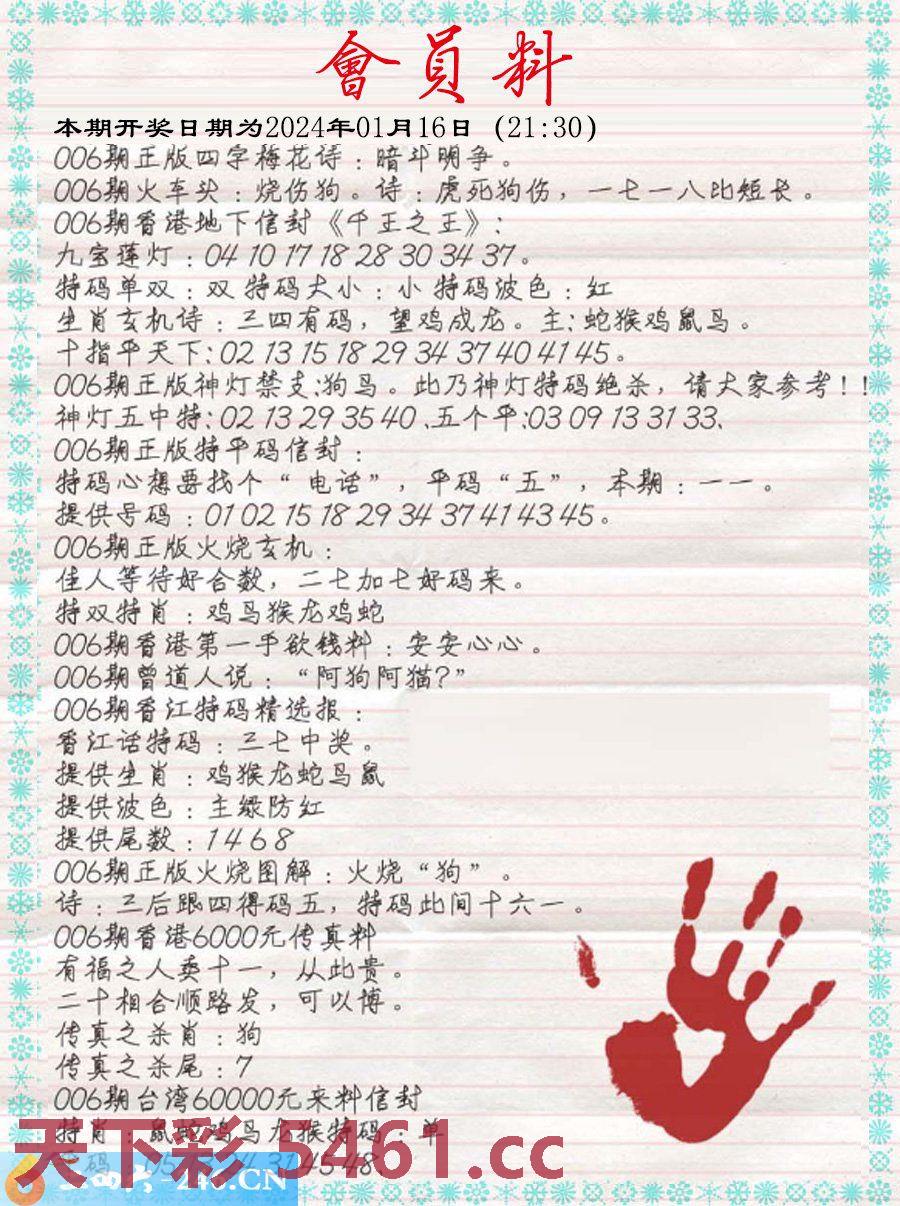 會員料
本期开奖日期为2024年01月16日 (21:30)
006期正版四字梅花诗：暗斗明争。
006期火车头：烧伤狗。诗：虎死狗伤，一七一八比短长。
006期香港地下信封《千王之王》:
九宝莲灯：04 10 17 18 28 30 34 37。
特码单双：双 特码大小：小 特码波色：红
生肖玄机诗：三四有码，望鸡成龙。主:蛇猴鸡鼠马。
十指平天下:02 13 15 18 29 34 37 40 41 45。
006期正版神灯禁支:狗马。此乃神灯特码绝杀，请大家参考！！
神灯五中特:02 13 29 35 40、五个平:03 09 13 31 33、
006期正版特平码信封：
特码心想要找个“ 电话”，平码“五”，本期：一一。
提供号码：01 02 15 18 29 34 37 41 43 45。
006期正版火烧玄机：
佳人等待好合数，二七加七好码来。
特双特肖：鸡马猴龙鸡蛇
006期香港第一手欲钱料：安安心心。
006期曾道人说：“阿狗阿猫?”
006期香江特码精选报：
香江话特码：三七中奖。
提供生肖：鸡猴龙蛇马鼠
提供波色：主绿防红
提供尾数：1 4 6 8
006期正版火烧图解：火烧“狗”。
诗：三后跟四得码五，特码此间十六一。
006期香港6000元传真料
有福之人卖十一，从此贵。
二十相合顺路发，可以博。
传真之杀肖：狗
传真之杀尾：7
006期台湾60000元来料信封
特肖：鼠蛇鸡马龙猴特码：单
天下彩 5461.cc
246.CN